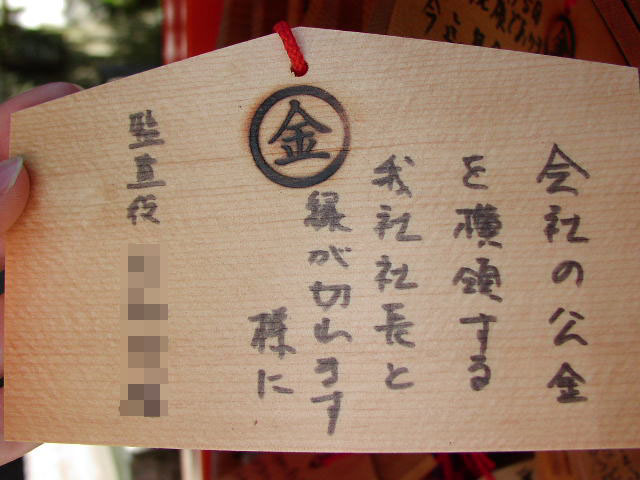 会社の公金
を横領する
我社社長と
縁が切れます
様に
監査役
金